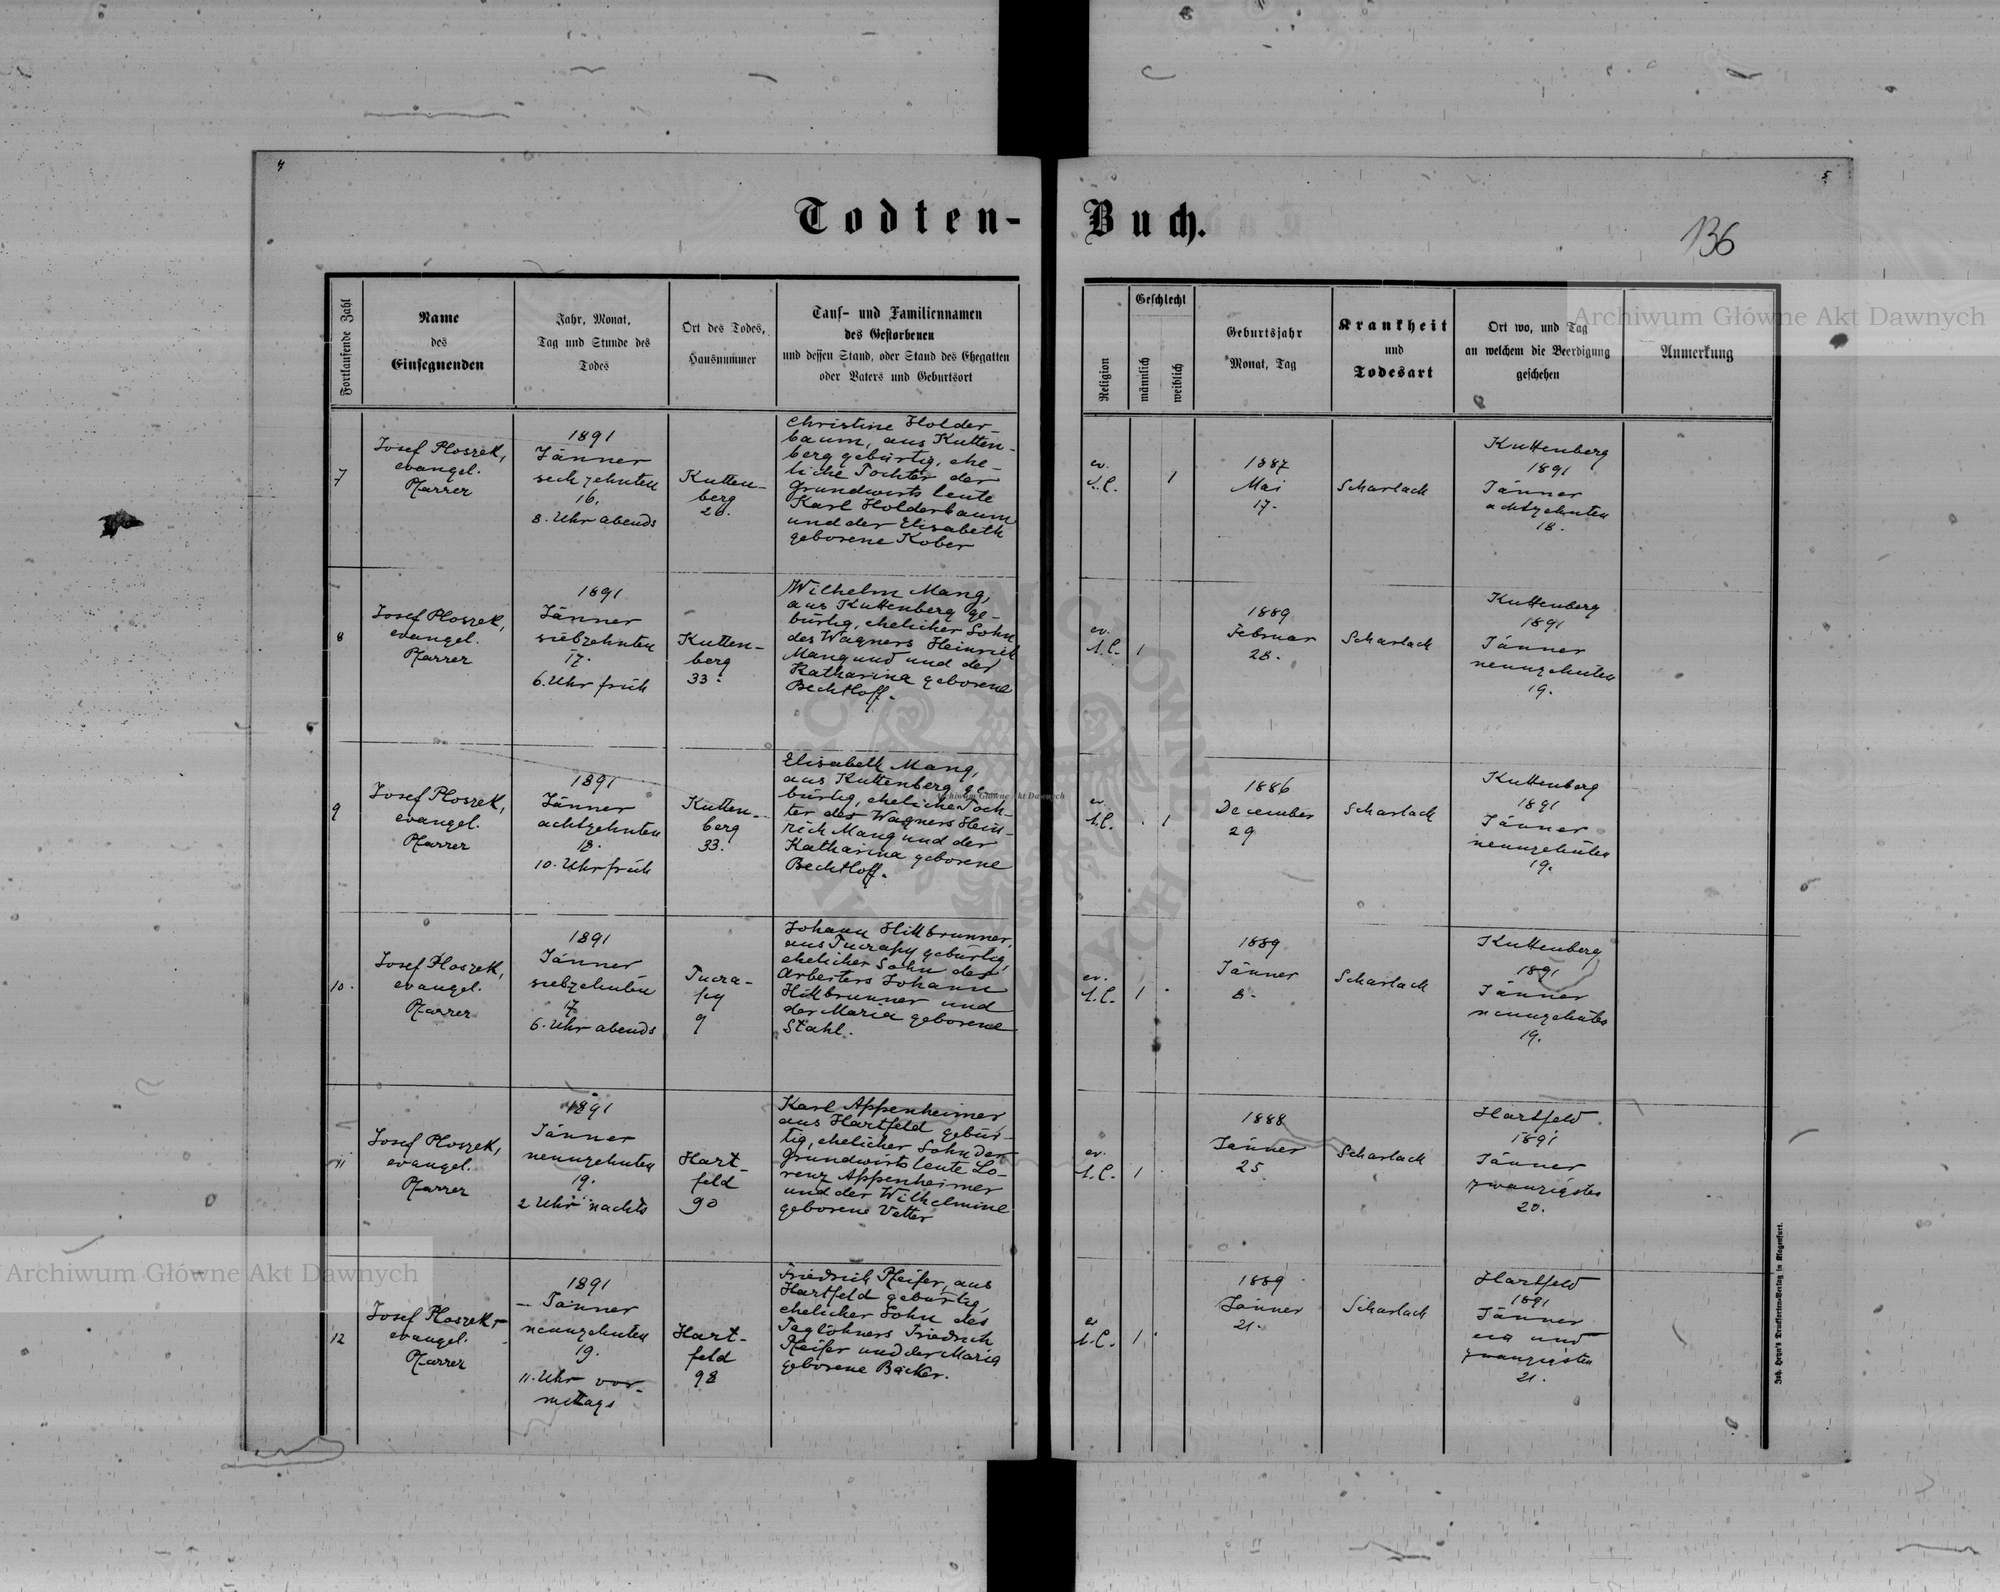 4
5.
Todten-Buch.
136
Fortlaufende Zahl
Name
des
Einsegnenden
Jahr, Monat,
Tag und Stunde des
Todes
Ort des Todes,
Hausnummer
Tauf- und Familiennamen
des Gestorbenen
und dessen Stand, oder Stand des Ehegatten
oder Vaters und Geburtsort
Religion
Geschlecht
männlich
weiblich
Geburtsjahr
Monat, Tag
Krankheit
und
Todesart
Ort wo, und Tag
an welchem die Beerdigung
geschehen
Anmerkung
7
Josef Ploszek,
evangel.
Pfarrer
1891
Jänner
sechzehnten
16.
8. Uhr abends
Kutten-
berg
26.
Christine Holder-
baum, aus Kutten-
berg gebürtig, ehe-
liche Tochter der
Grundwirtsleute
Karl Holderbaum
und der Elisabeth
geborene Kober
ev.
A.C.
1
1887
Mai
17.
Scharlach
Kuttenberg
1891
Jänner
achtzehnten
18.
8
Josef Ploszek,
evangel.
Pfarrer
1891
Jänner
siebzehnten
17.
6. Uhr früh
Kutten-
berg
33.
Wilhelm Mang,
aus Kuttenberg ge-
bürtig, ehelicher Sohn
des Wagners Heinrich
Mang und und der
Katharina geborene
Bechtloff.
ev.
A.C.
1
1889
Februar
28.
Scharlach
Kuttenberg
1891
Jänner
neunzehnten
19.
9
Josef Ploszek,
evangel.
Pfarrer
1891
Jänner
achtzehnten
18.
10. Uhr früh
Kutten-
berg
33.
Elisabeth Mang,
aus Kuttenberg ge-
bürtig, eheliche Toch-
ter des Wagners Hein-
rich Mang und der
Katharina geborene
Bechtloff.
ev.
A.C.
1
1886
December
29
Scharlach
Kuttenberg
1891
Jänner
neunzehnten
19.
10.
Josef Ploszek,
evangel.
Pfarrer
1891
Jänner
siebzehnten
17
6. Uhr abends
Tucza-
py
9
Johann Hillbrunner,
aus Tuczapy gebürtig,
ehelicher Sohn des
Arbeiters Johann
Hillbrunner und
der Maria geborene
Stahl.
ev.
A.C.
1
1889
Jänner
8.
Scharlach
Kuttenberg
1891
Jänner
neunzehnten
19.
11
Josef Ploszek,
evangel.
Pfarrer
1891
Jänner
neunzehnten
19.
2 Uhr nachts
Hart-
feld
90
Karl Appenheimer
aus Hartfeld gebür-
tig, ehelicher Sohn der
Grundwirtsleute Lo-
renz Appenheimer
und der Wilhelmine
geborene Vetter
ev.
A.C.
1
1888
Jänner
25
Scharlach
Hartfeld
1891
Jänner
zwanzigsten
20.
12
Josef Ploszek
evangel.
Pfarrer
1891
Jänner
neunzehnten
19.
11. Uhr vor-
mittags
Hart-
feld
98
Friedrich Pfeifer, aus
Hartfeld gebürtig,
ehelicher Sohn des
Taglöhners Friedrich
Pfeifer und der Maria
geborene Bäcker.
ev
A.C.
1
1889
Jänner
21.
Scharlach
Hartfeld
1891
Jänner
ein und
zwanzigsten
21.
Joh. Heyn's Drucksorten-Verlag in Klagenfurt.
Archiwum Główne Akt Dawnych
Archiwum Główne Akt Dawnych
Archiwum Główne Akt Dawnych